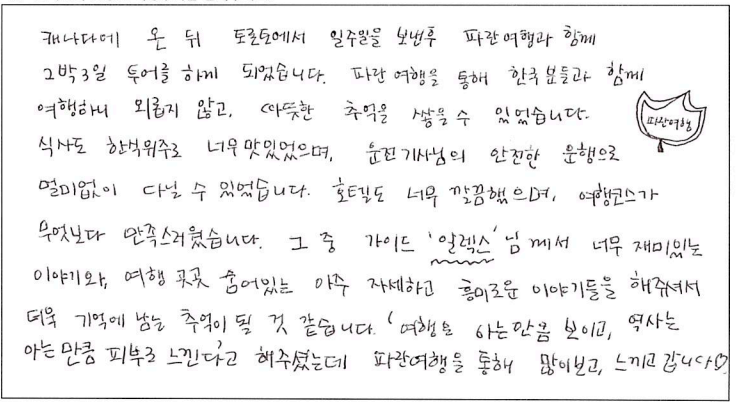 캐나다에 온 뒤 토론토에서 일주일을 보낸후 파란여행과 함께
2박3일 투어를 하게 되었습니다. 파란여행을 통해 한국분들과 함께
여행하니 외롭지 않고, 따뜻한 추억을 쌓을 수 있었습니다.
파란여행
식사도 한식위주로 너무 맛있었으며, 운전기사님의 안전한 운행으로
멀미없이 다닐 수 있었습니다. 호텔도 너무 깔끔했으며, 여행코스가
무엇보다 만족스러웠습니다. 그 중 가이드 '알렉스'님께서 너무 재미있는
이야기와, 여행 곳곳 숨어있는 아주 자세하고 흥미로운 이야기들을 해주셔서
더욱 기억에 남는 추억이 될 것 같습니다. '여행은 아는만큼 보이고, 역사는
아는 만큼 피부로 느낀다'고 해주셨는데 파란여행을 통해 많이보고, 느끼고 갑니다♡